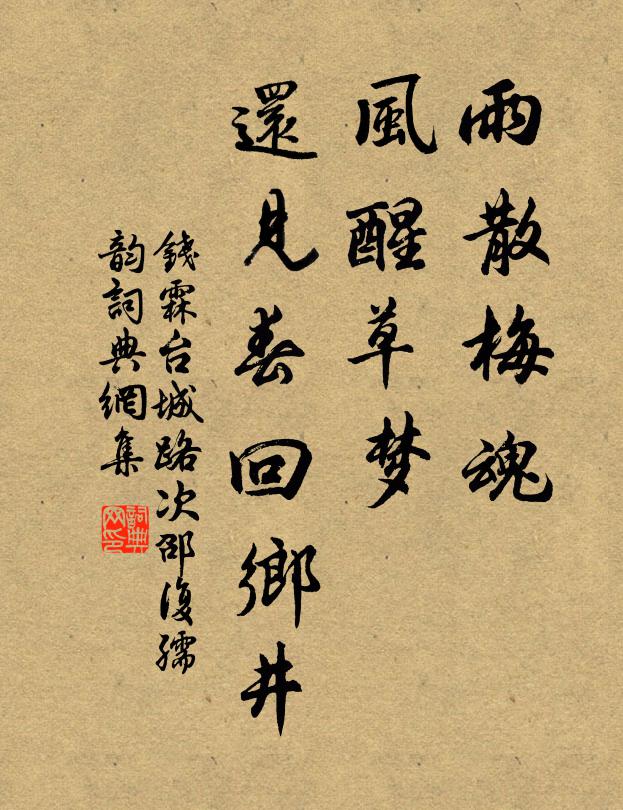 雨散梅魂
風醒草梦
還見春回鄉井
錢霖台城路次邵復孺
韵詞典網集
詞典网印